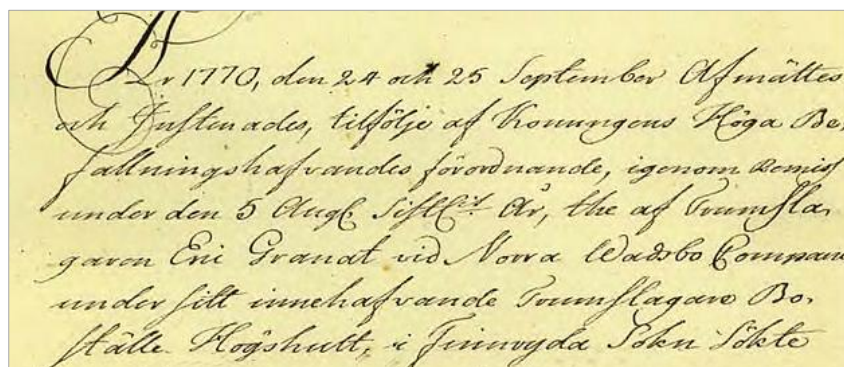 År 1770, den 24 och 25 September Afmättes
och Justerades, tilfölje af Konungens Höga Be,
fallningshafvandes förordnande, igenom Remiss
under den 5 Aug. Sistl. År, the af Trumsla,
garen Eric Granat vid Norra Wadsbo Compani
under sitt innehafvande Trumslagare Bo,
ställe Högshult, i Finneryda Sokn Sökte